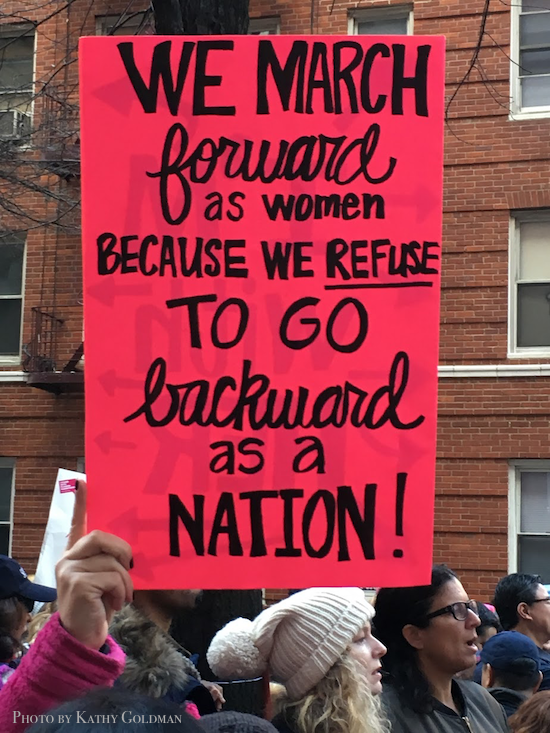 WE MARCH
forward
as women
BECAUSE WE REFUSE
TO GO
backward
as a
NATION!
PHOTO BY KATHY GOLDMAN